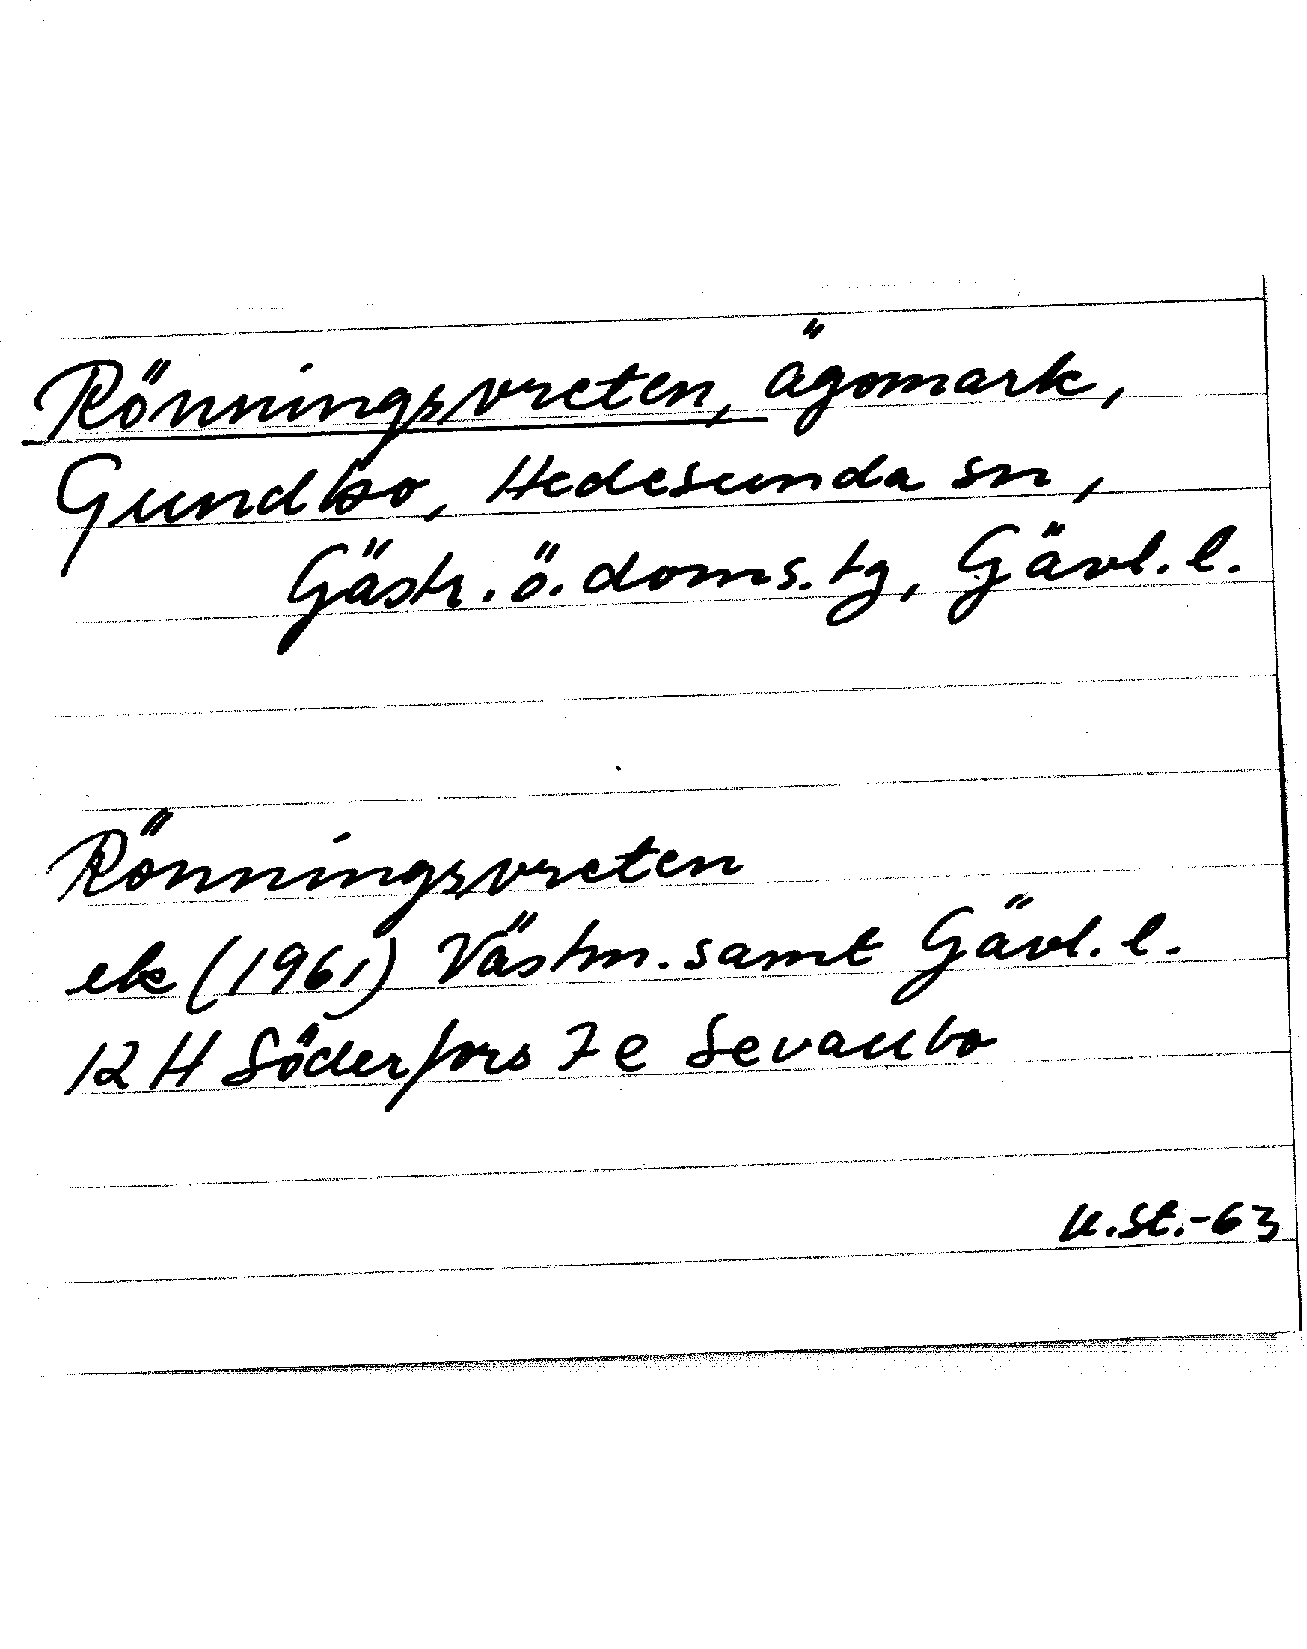 Rönningsvreten, ägomark,
Gundbo, Hedesunda sn,
Gästr. ö. doms. tg, Gävl. l.
Rönningsvreten
ek (1961) Västm. samt Gävl. l.
12 H Söderfors 7 e Sevallbo
u.st.-63